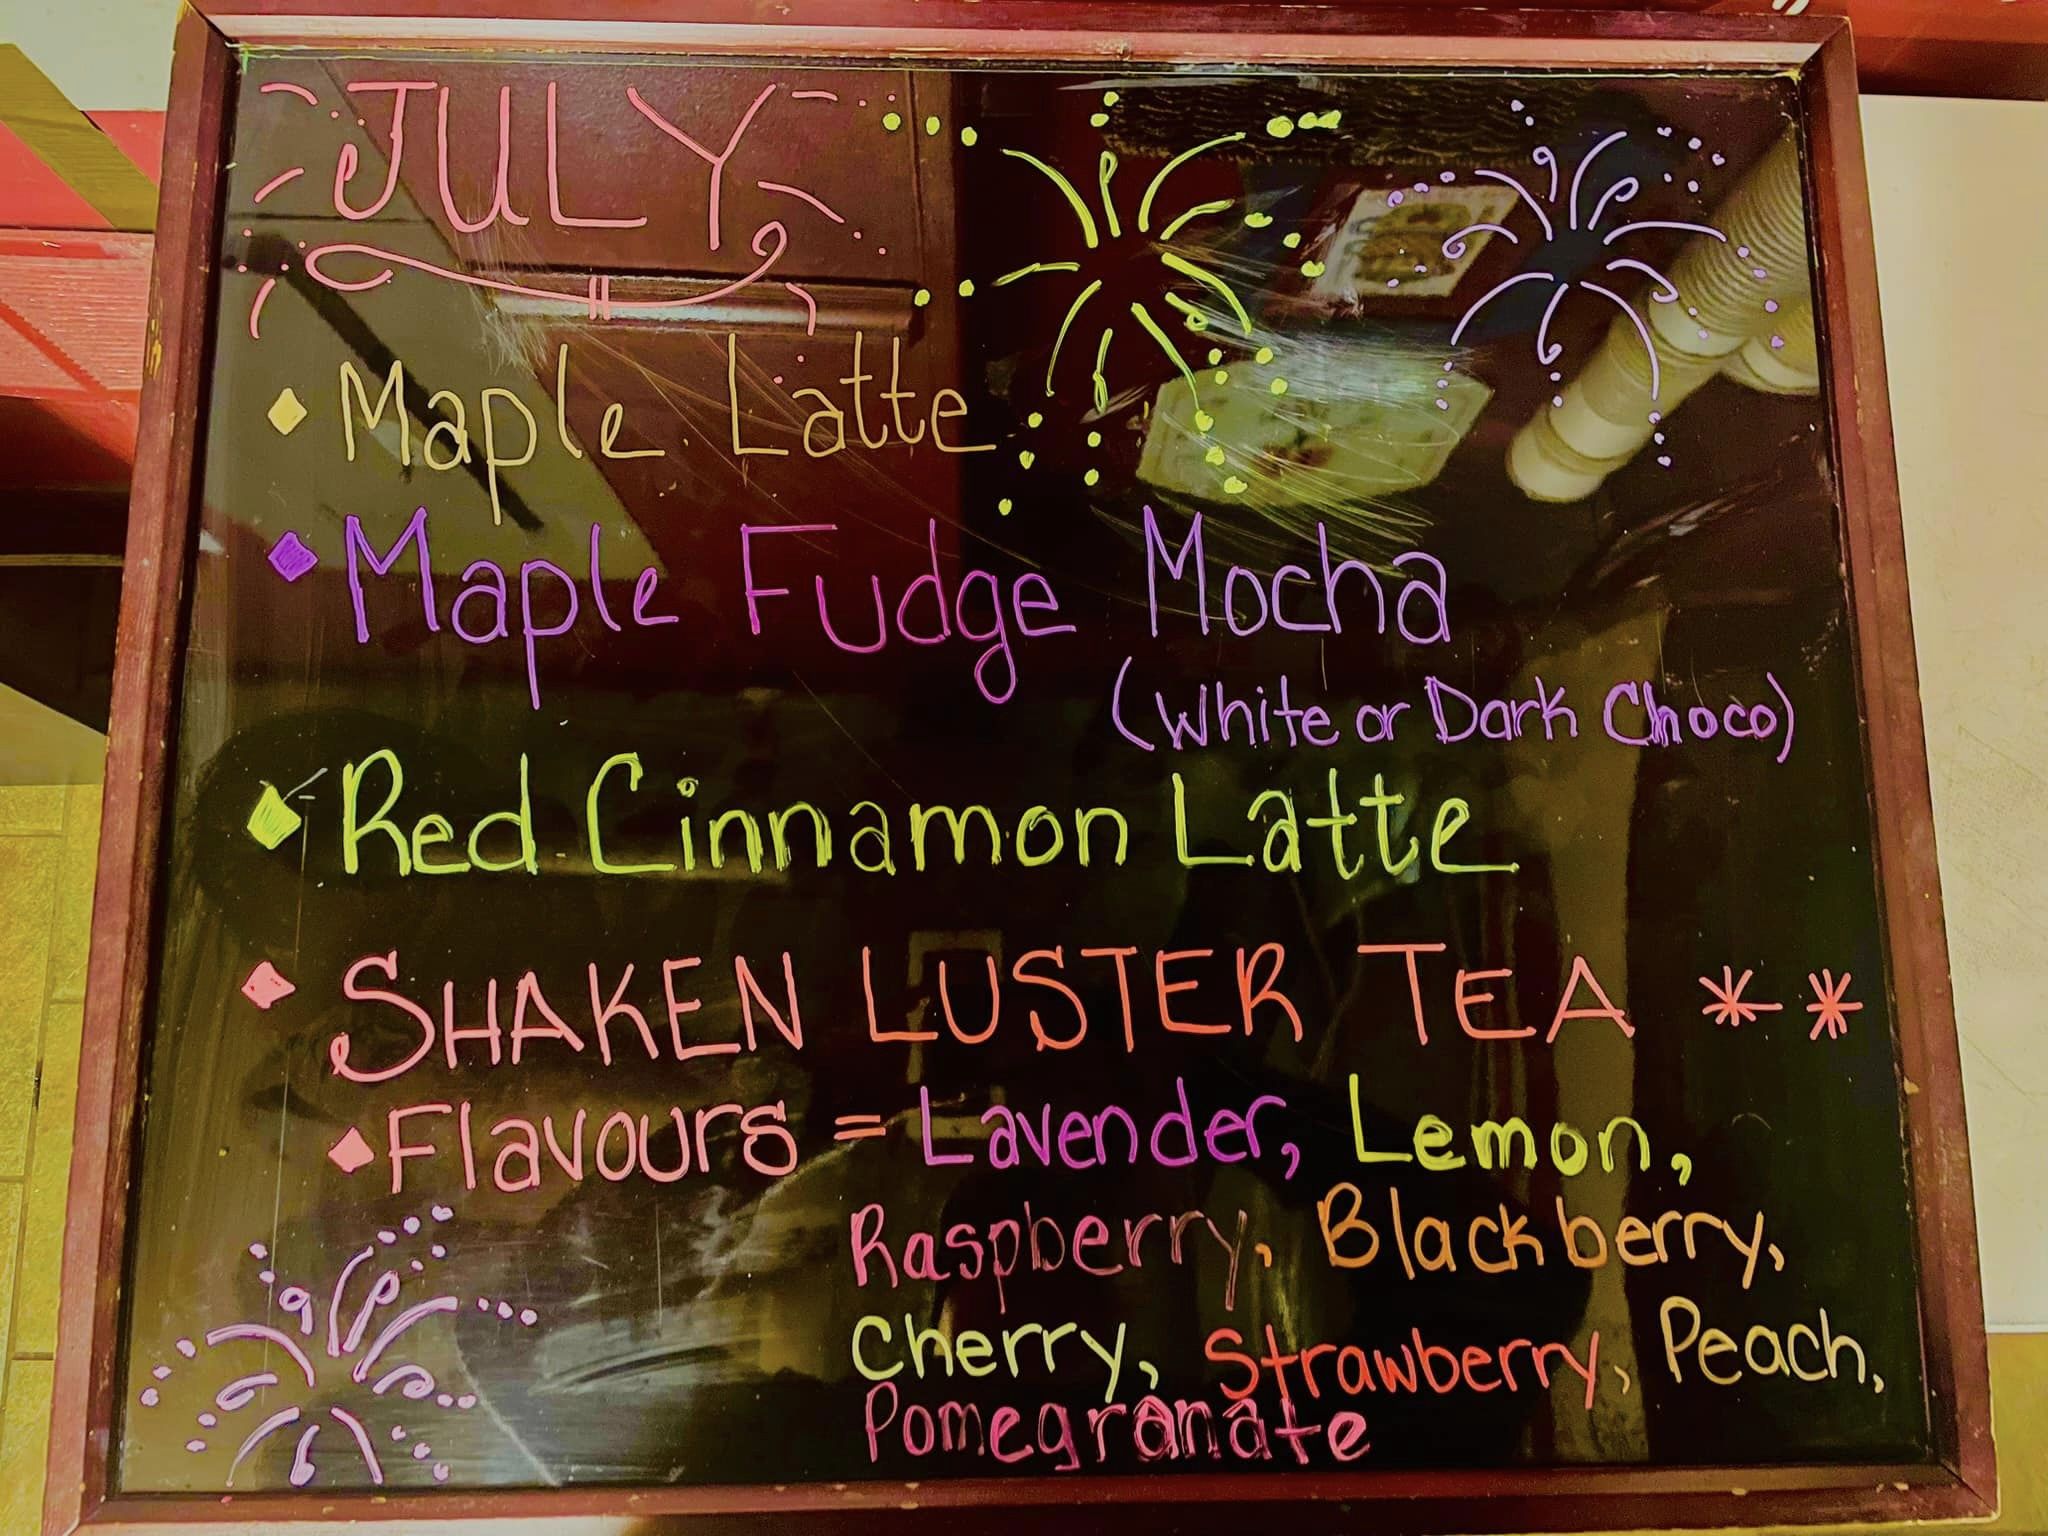 JULY
Maple Latte
Maple Fudge Mocha
(White or Dark Choco)
Red Cinnamon Latte
SHAKEN LUSTER TEA **
Flavours = Lavender, Lemon,
Raspberry, Blackberry,
Cherry, Strawberry, Peach,
Pomegranate